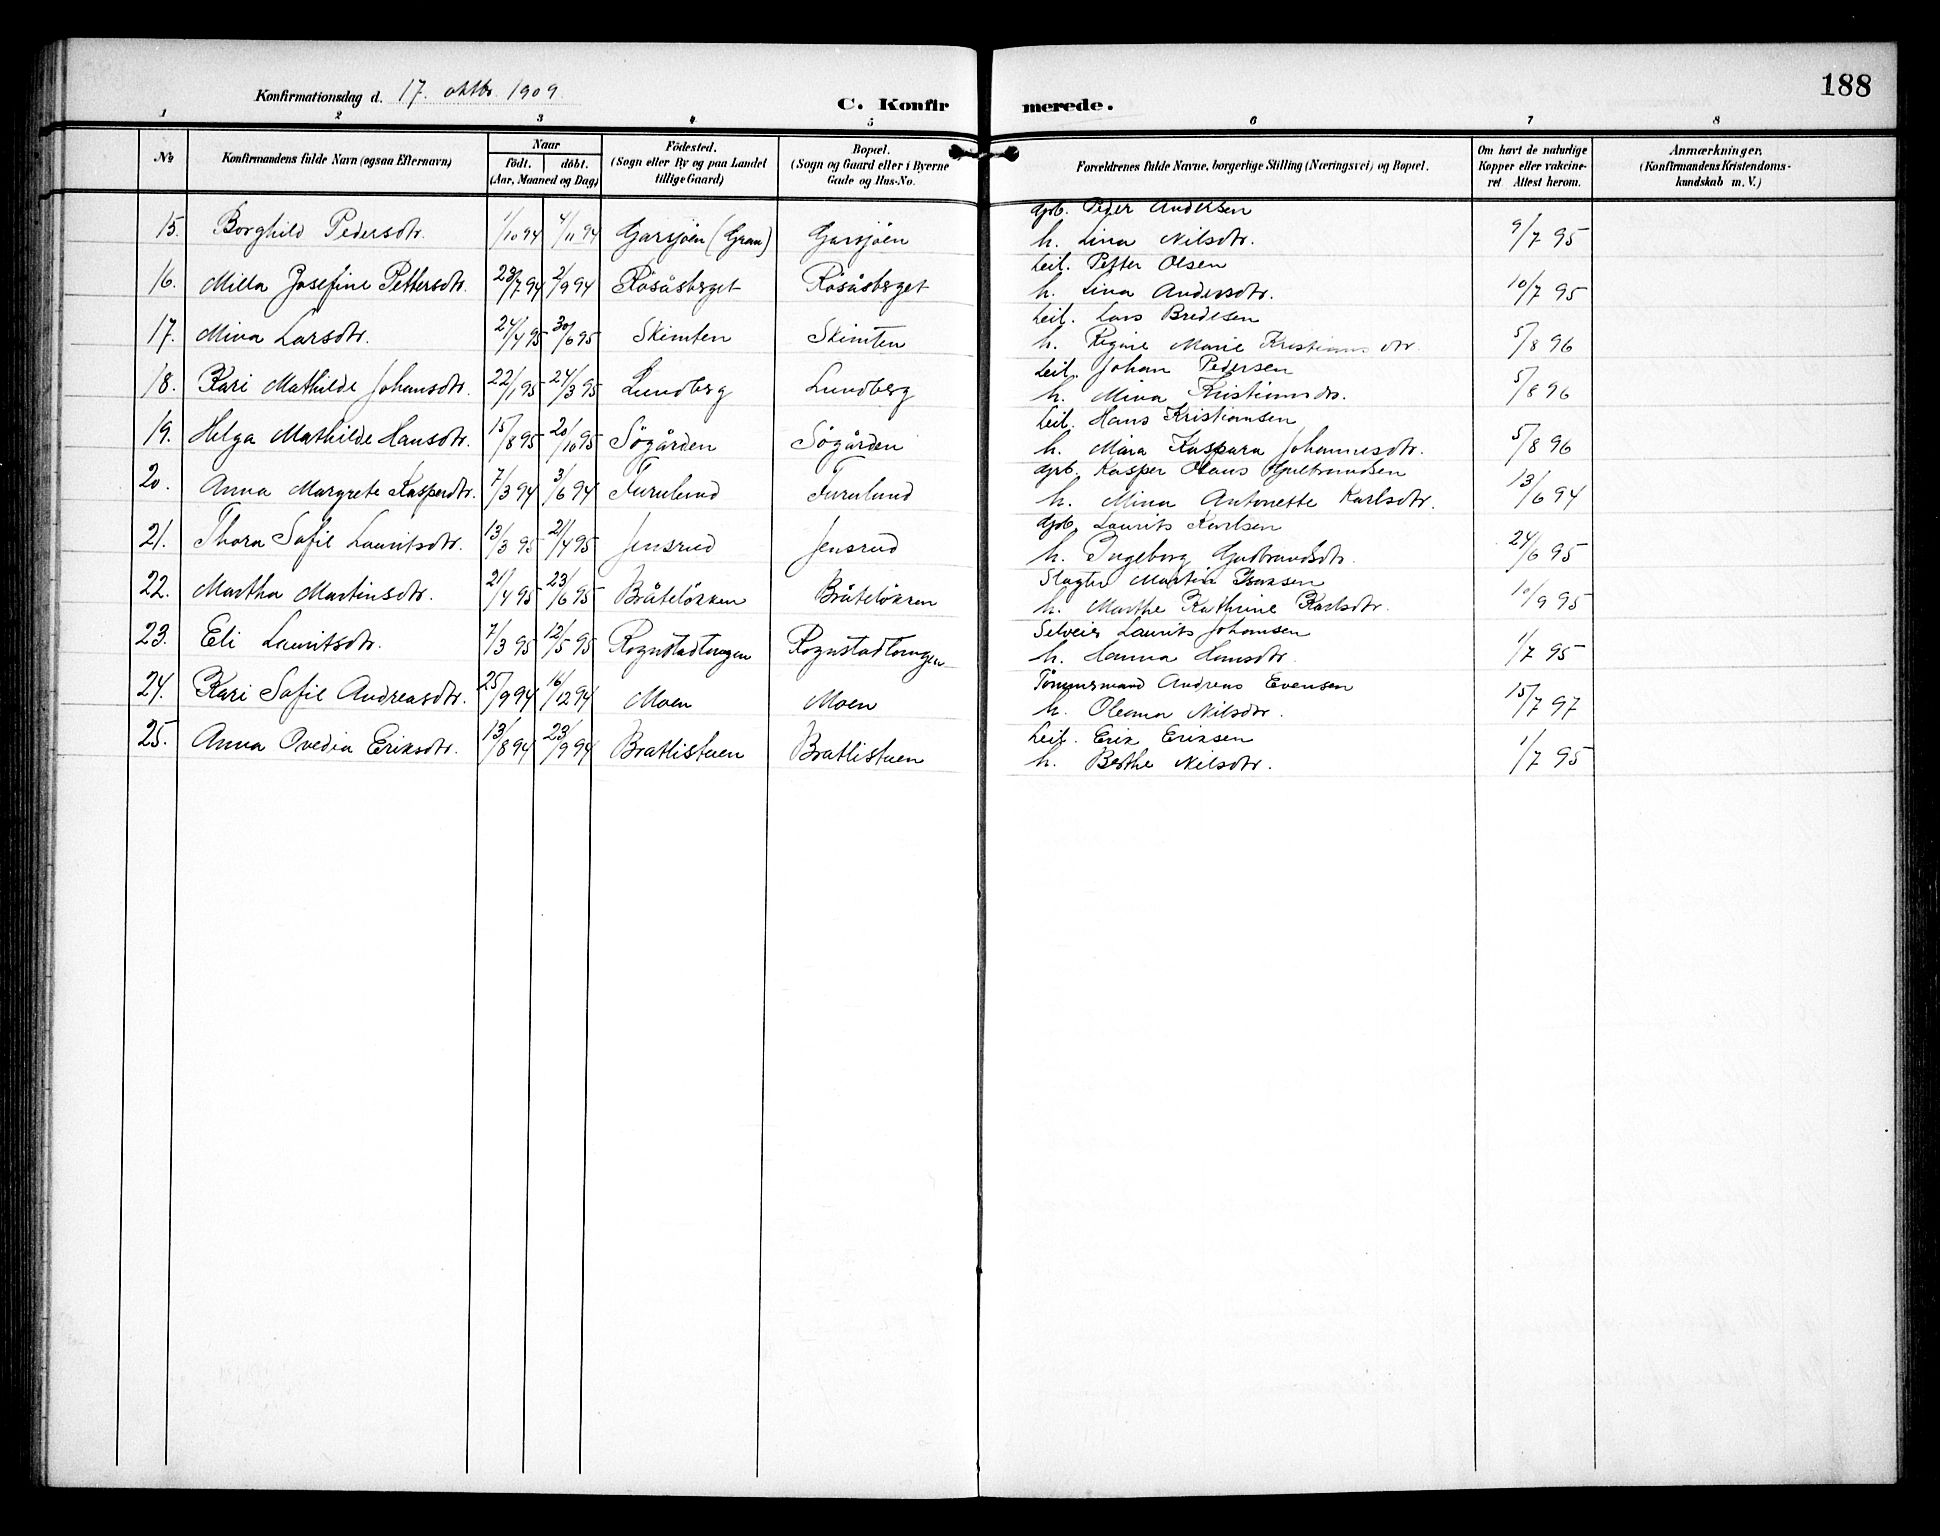 188
Konfirmationsdag d. 17. oktbr. 1909
C. Konfirmerede.
1 2 3 4 5 6 7 8
No Konfirmandens fulde Navn (ogsaa Efternavn) Naar födt. döbt. (Aar, Maaned og Dag) Födested. (Sogn eller By og paa Landet tillige Gaard) Bopæl. (Sogn og Gaard eller i Byerne Gade og Hus-No. Forældrenes fulde Navne, borgerlige Stilling (Næringsvei) og Bopæl. Om havt de naturlige Kopper eller vakcineret Attest herom. Anmærkninger, (Konfirmandens Kristendomskundskab m. V.)
15. Borghild Pedersdtr. 1/10 94 4/11 94 Garsjöen (Gran) Garsjöen Gjb. Peder Andersen
h. Lina Nilsdtr. 9/7 95
16. Milla Josefine Pettersdtr. 23/7 94 2/9 94 Rösåsberget Rösåsberget Leil. Petter Olsen
h. Lina Andersdtr. 10/7 95
17. Mina Larsdtr. 24/4 95 30/6 95 Skimten Skimten Leil. Lars Bredesen
h. Regine Marie Kristiansdtr. 5/8 96
18. Kari Mathilde Johansdtr. 22/1 95 24/3 95 Lundberg Lundberg Leil. Johan Pedersen
h. Mina Kristiansdtr. 5/8 96
19. Helga Mathilde Hansdtr. 15/8 95 20/10 95 Sögården Sögården Leil. Hans Kristiansen
h. Mina Kaspara Johannesdtr. 5/8 96
20. Anna Margrete Kasperdtr. 7/3 94 3/6 94 Furulund Furulund Gjb. Kasper Olaus Gulbrandsen
h. Mina Antonette Karlsdtr. 13/6 94
21. Thora Sofie Lauritsdtr. 13/3 95 21/4 95 Jensrud Jensrud Gjb. Laurits Karlsen
h. Ingeborg Gudbrandsdtr. 24/6 95
22. Martha Martinsdtr. 21/4 95 23/6 95 Bråtelökken Bråtelökken Slagter Martin Isaksen
h. Marthe Kathrine Karlsdtr. 10/9 95
23. Eli Lauritsdtr. 7/3 95 12/5 95 Rognstadtangen Rognstadtangen Selveier Laurits Johansen
h. Hanna Hansdtr. 1/7 95
24. Kari Sofie Andreasdtr. 25/9 94 16/12 94 Moen Moen Tömmermand Andreas Evensen
h. Oleana Nilsdtr. 15/7 97
25. Anna Ovedia Eriksdtr. 13/8 94 23/9 94 Bratlistuen Bratlistuen Leil. Erik Eriksen
h. Berthe Nilsdtr. 1/7 95